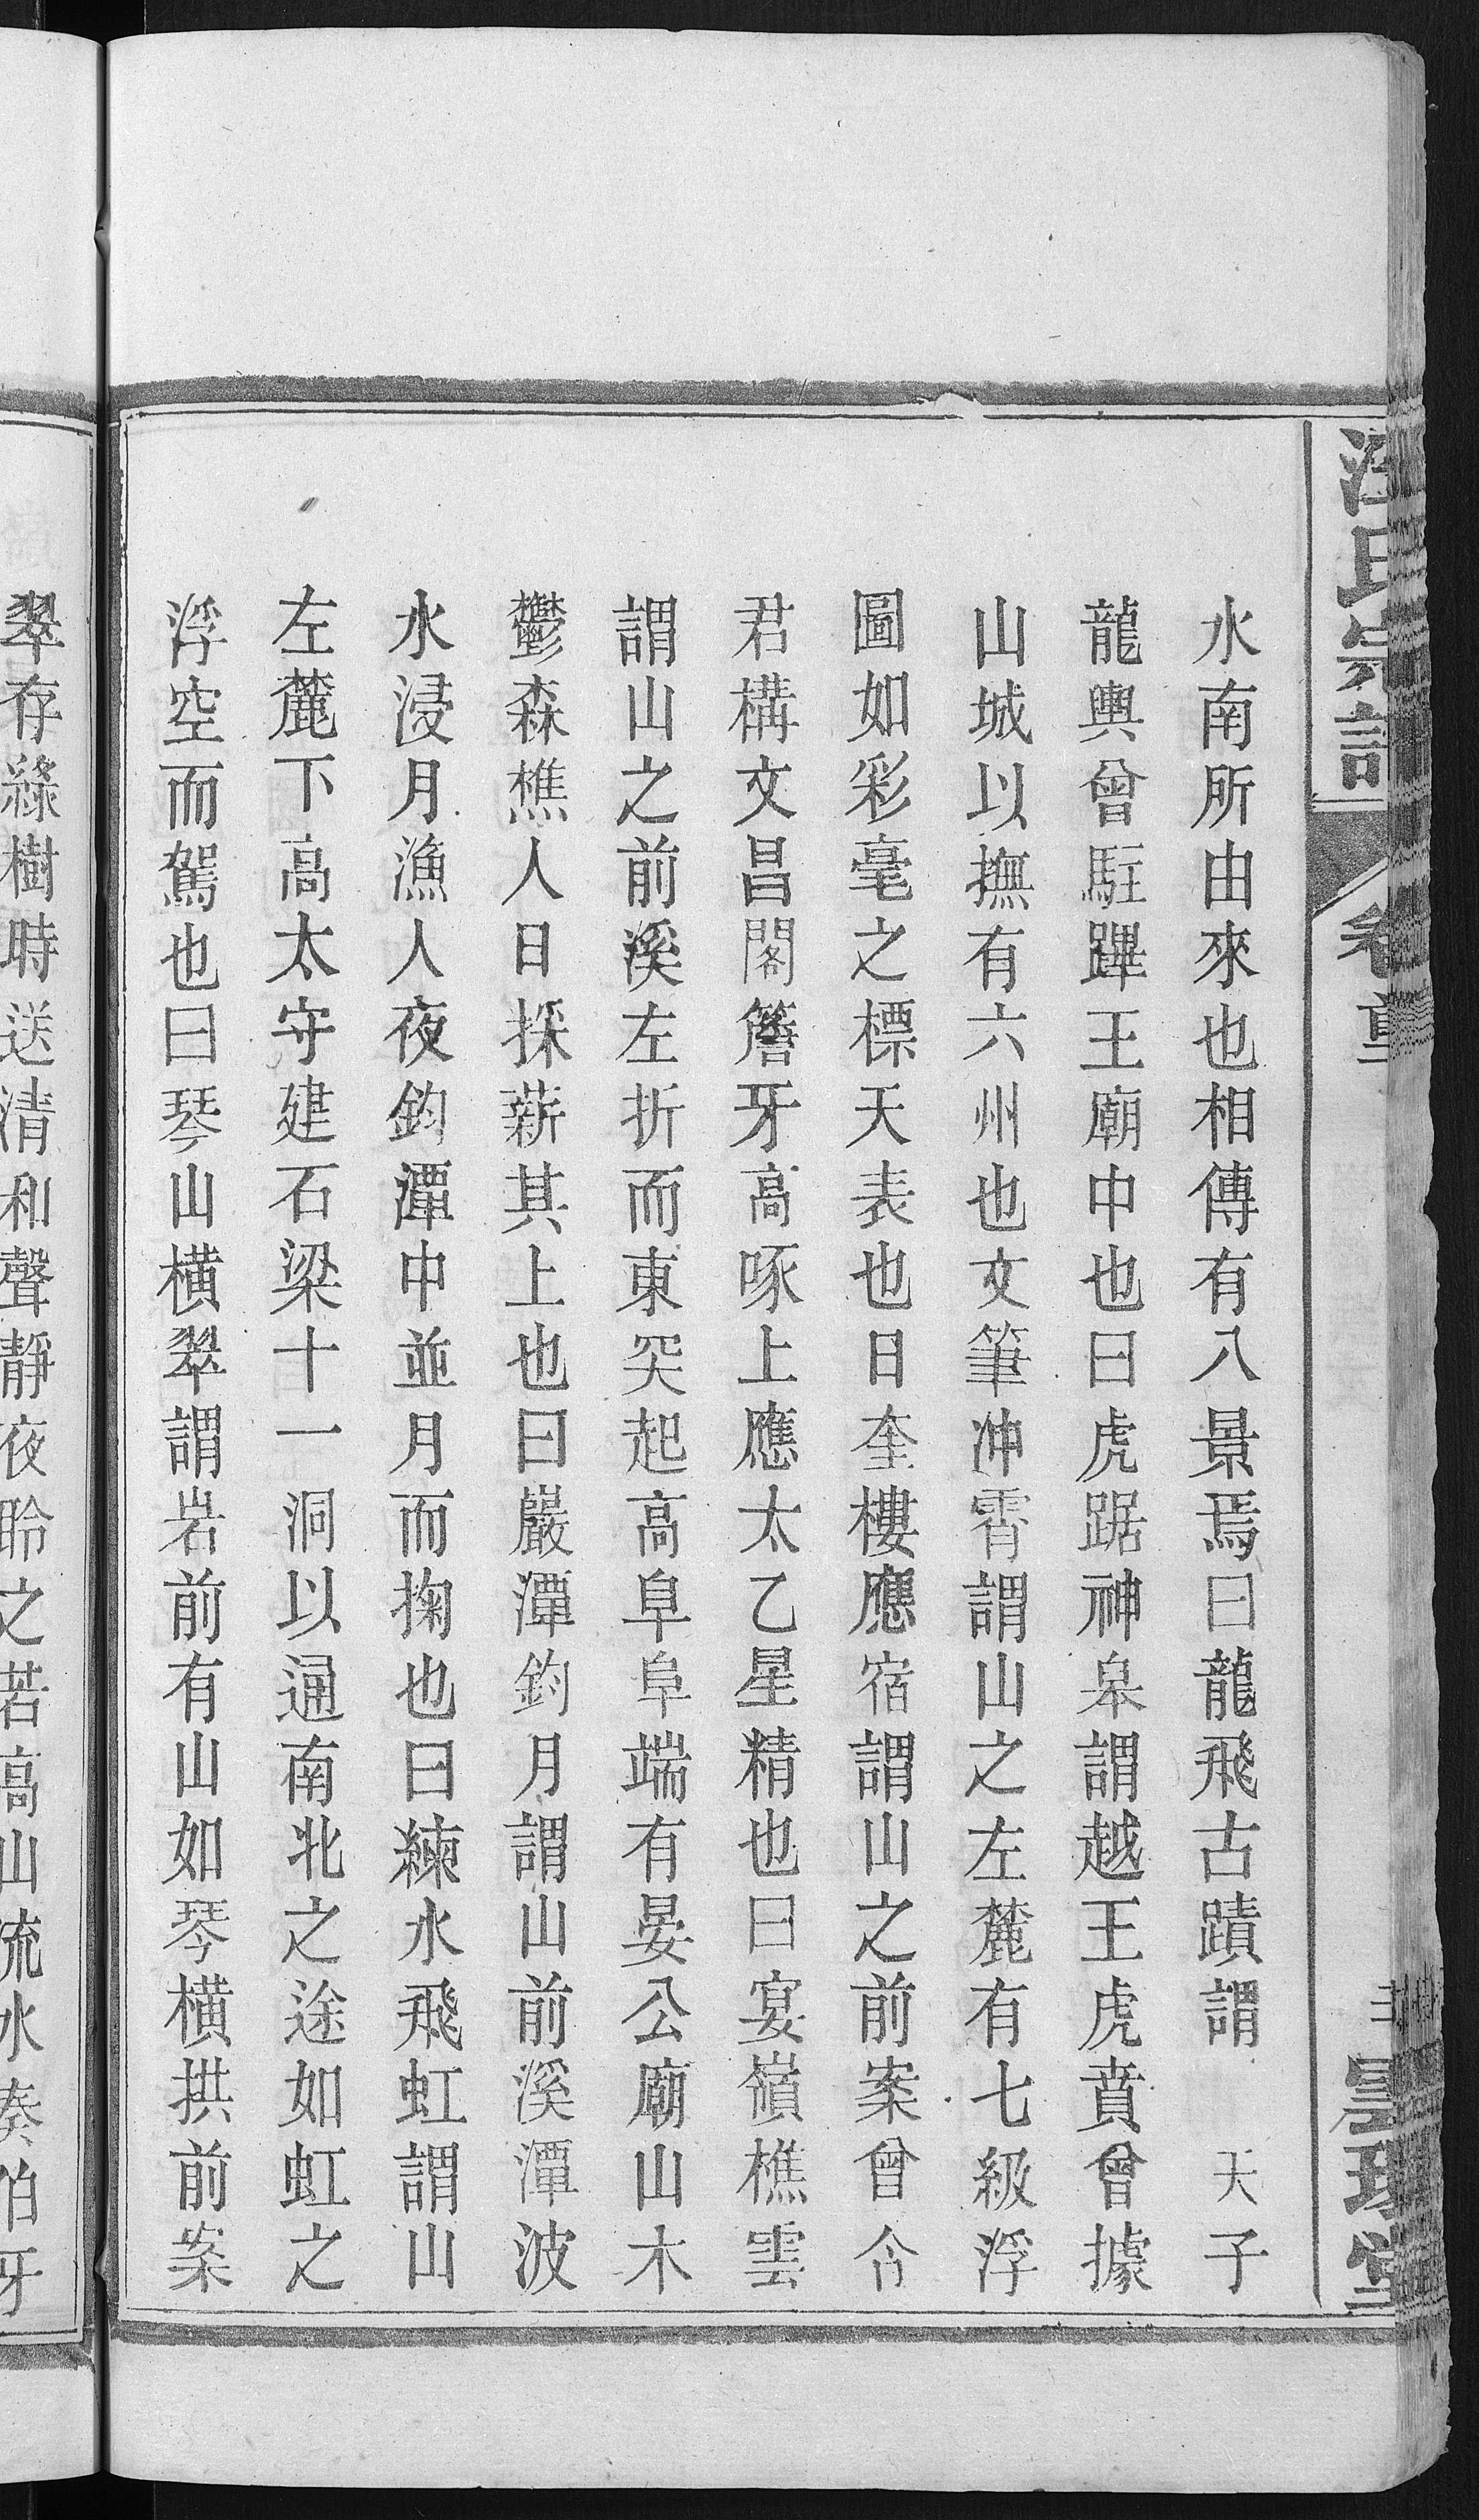 水南所由來也相傳有八景焉曰龍飛古蹟謂　天子
龍輿曾駐蹕王廟中也曰虎踞神皋謂越王虎賁曾據
山城以撫有六州也文筆冲霄謂山之左麓有七級浮
圖如彩毫之標天表也曰奎樓應宿謂山之前案曾令
君構文昌閣簷牙高啄上應太乙星精也曰宴嶺樵雲
謂山之前溪左折而東突起高阜阜端有晏公廟山木
鬱森樵人日採薪其上也曰巖潭釣月謂山前溪潭波
水浸月漁人夜鈞潭中並月而掬也曰練水飛虹謂山
左麓下高太守建石梁十一洞以通南北之途如虹之
浮空而駕也曰琴山橫翠謂岩前有山如琴橫拱前案
翠存綠樹時送清和聲靜夜聆之若高山流水奏伯牙